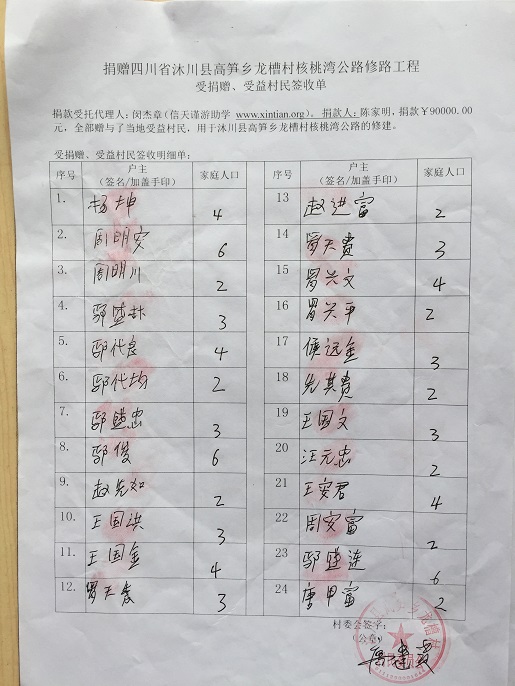 捐赠四川省沐川县高笋乡龙槽村核桃湾公路修路工程
受捐赠、受益村民签收单
捐款受托代理人：闵杰章（信天谨游助学 www.xintian.org）。 捐款人：陈家明，捐款￥90000.00
元，全部赠与了当地受益村民，用于沐川县高笋乡龙槽村核桃湾公路的修建。
受捐赠、受益村民签收明细单：
序号 户主（签名/加盖手印） 家庭人口 序号 户主（签名/加盖手印） 家庭人口
1. 杨坤 4 13 赵进富 2
2. 周明安 6 14 罗天贵 3
3. 周明川 2 15 罗兴文 4
4. 鄢 3 16 罗兴平 2
5. 鄢代良 4 17 侯远金 3
6. 鄢代均 2 18 先其贵 2
7. 鄢 忠 3 19 王国文 3
8. 鄢俊 6 20 汪元忠 2
9. 赵先如 2 21 王安君 4
10. 王国洪 3 22 周安富 2
11. 王国金 4 23 鄢 连 6
12. 罗天 3 24 唐甲富 2
村委会签字：
（公章）